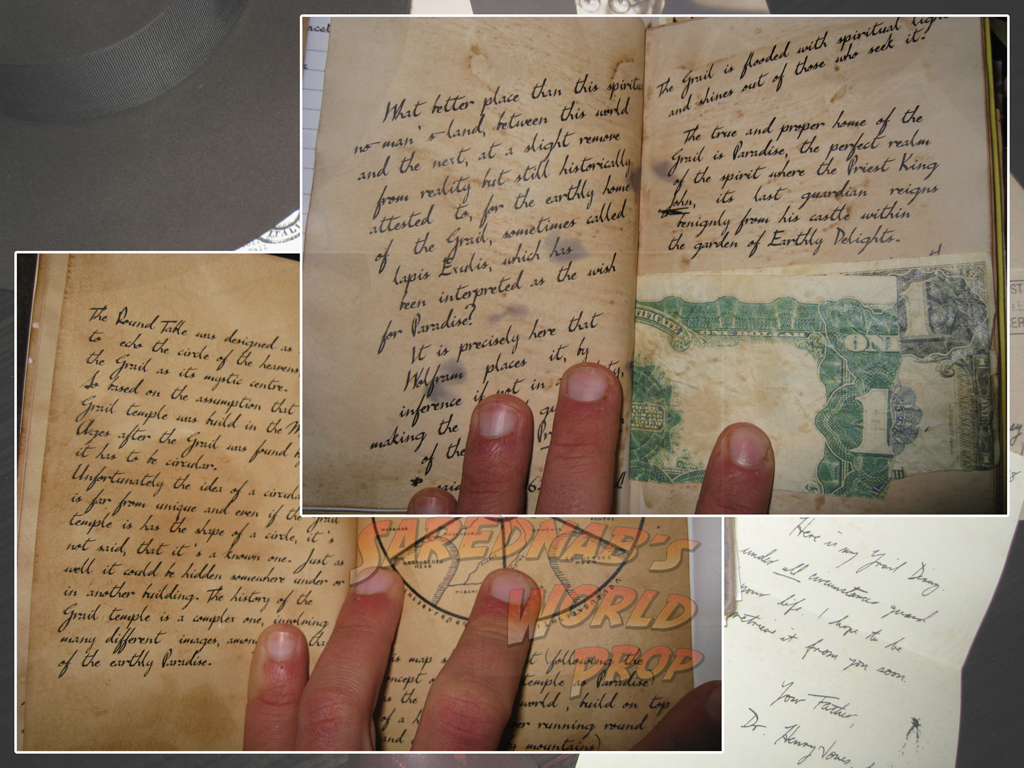 What better place than this
no-man's-land, between this world
and the next, at a slight remove
from reality but still historically
attested to, for the earthly home
of the Grail, sometimes called
lapis Exulis, which has
been interpreted as the wish
for Paradise?
It is precisely here that
Wolfram places it, by
inference if not in
making the
of the
said
The Grail is flooded with spiritual
and shines out of those who seek it.
The true and proper home of the
Grail is Paradise, the perfect realm
of the spirit where the Priest King
John, its last guardian reigns
benignly from his castle within
the garden of Earthly Delights.
ONE DOLLAR
ONE
1
1
The Round Table was designed as
to echo the circle of the heavens
the Grail as its mystic centre.
So based on the assumption that
Grail temple was build in the
Ages after the Grail was found
it has to be circular.
Unfortunately the idea of a
is far from unique and even if the Grail
temple is has the shape of a circle, it's
not said, that it's a known one. Just as
well it could be hidden somewhere under or
in another building. The history of the
Grail temple is a complex one, involving
many different images, among the
of the earthly Paradise.
SAREDKAB'S
WORLD
PROP
is map
(following the
temple as Paradise
world, build on top
of a
running round
and
by mountains)
Here is my Grail Diary.
under all circumstances guard
your life. I hope to be
it from you soon.
Your Father,
Dr. Henry Jones